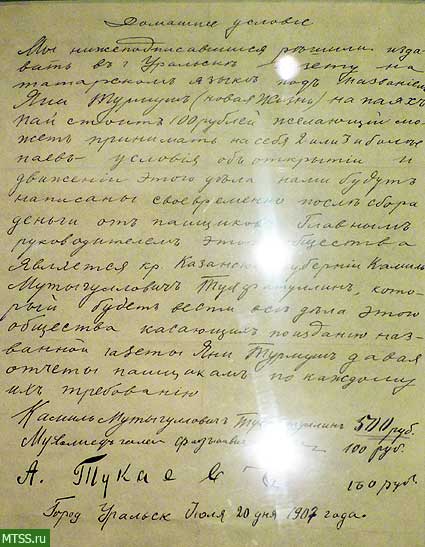 Домашнее условiе
Мы нижеподписавшиеся рѣшили изда-
вать въ г Уральскѣ газету на
татарскомъ языкѣ подъ названiемъ
Яни Турмушъ (новая жизнь) на паяхъ
пай стоитъ 100 рублей желающiй мо-
жетъ принимать на себя 2 или 3 и болѣе
паевъ условiя объ открытiи и
движенiи этого дѣла нами будутъ
написаны своевременно послѣ сбора
деньги отъ пайщиковъ Главнымъ
руководителемъ этого общества
является кр. Казанской губернiи Камиль
Мутыгулловичъ Тухфатуллинъ, кото-
рый будетъ вести всѣ дѣла этого
общества касающихъ по изданiю наз-
ванной газеты Яни Турмушъ давая
отчеты пайщикамъ по каждому
ихъ требованiю
Камиль Мутыгулловичъ 500 руб.
100 руб.
А. Тукаевъ 100 руб.
Городъ Уральск Июля 20 дня 1907 года.
MTSS.ru